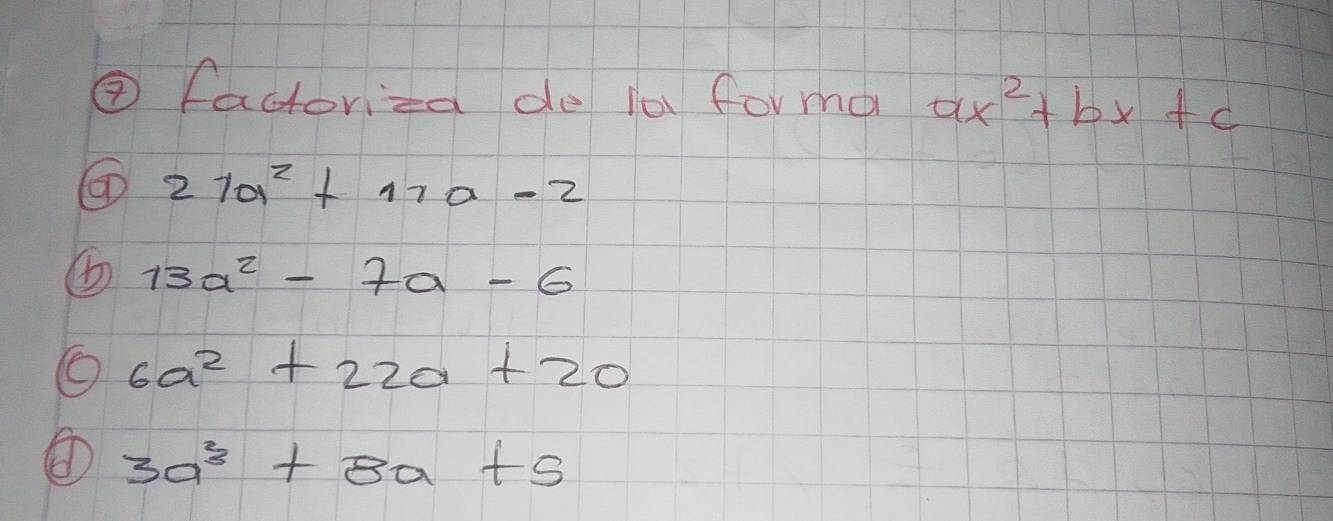 ⑦ factoriza de la forma ax² + bx + c
ⓐ 21a² + 11a - 2
ⓑ 13a² - 7a - 6
ⓒ 6a² + 22a + 20
ⓓ 3a³ + 8a + 5